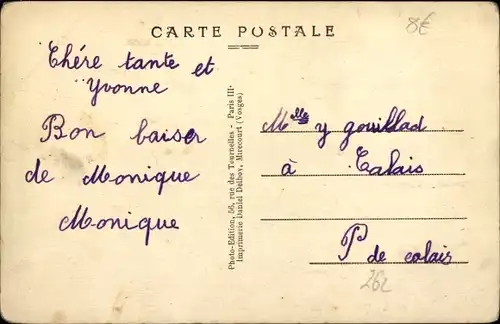 CARTE POSTALE
8€
Chére tante et
Yvonne
Bon baiser
de Monique
Monique
Photo-Edition, 56, rue des Tournelles - Paris III·
Imprimerie Daniel Delboy, Mirecourt (Vosges)
Mlle y gouillad
à Calais
P de calais
262